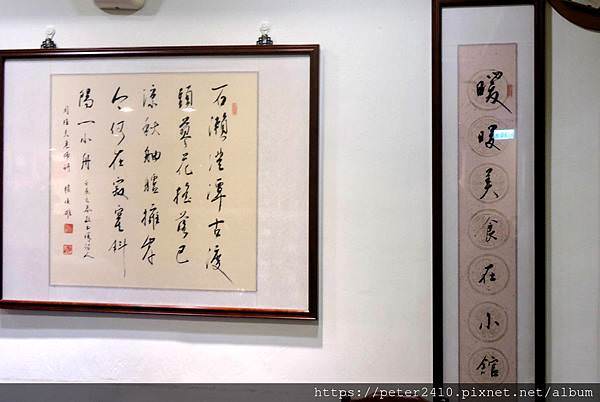 石瀨澄潭古渡
頭蓼花搖落已
涼秋舳艫擁岸
今何在寂寞斜
陽一小舟
暖暖美食在小館
https://peter2410.pixnet.net/album